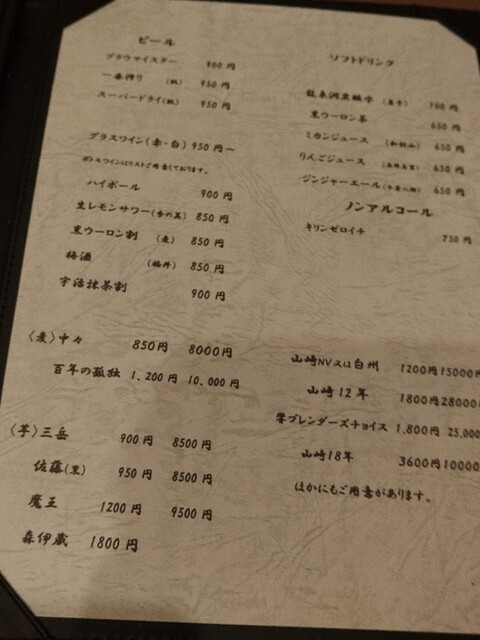 ビール
ブラウマイスター 900円
一番搾り (瓶) 950円
スーパードライ(瓶) 950円
グラスワイン(赤・白) 950円～
ボトルワインはリストご用意しております。
ハイボール 900円
生レモンサワー 850円
黒ウーロン割 (麦) 850円
梅酒 850円
宇治抹茶割 900円
〈麦〉中々 850円 8000円
百年の孤独 1,200円 10,000円
〈芋〉三岳 900円 8500円
佐藤(黒) 950円 8500円
魔王 1200円 9500円
森伊蔵 1800円
ソフトドリンク
龍泉洞黒酢 700円
黒ウーロン茶 650円
ミカンジュース (和歌山) 650円
りんごジュース 650円
ジンジャーエール 650円
ノンアルコール
キリンゼロイチ 750円
山崎NV又は白州 1200円 15000円
山崎12年 1800円 28000
響ブレンダーズチョイス 1,800円 25,000
山崎18年 3600円 10000
ほかにもご用意があります。